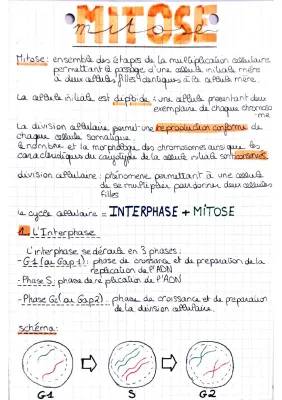 MITOSE
mitose
Mitose : ensemble des étapes de la multiplication cellulaire
permettant le passage d'une cellule initiale mère
à deux cellules filles identiques à la cellule mère.
La cellule initiale est diploïde : une cellule présentant deux
exemplaire de chaque chromoso
-me
La division cellulaire permet une reproduction conforme de
chaque cellule somatique.
le nombre et la morphologie des chromosomes ainsi que les
caractéristiques du caryotype de la cellule initiale sont conservés.
division cellulaire : phénomène permettant à une cellule
de se multiplier pour donner deux cellules
filles
Le cycle cellulaire = INTERPHASE + MITOSE
1. L'Interphase
L'interphase se déroule en 3 phases :
- G1 (ou Gap1) : phase de croissance et de préparation de la
réplication de l'ADN
- Phase S : phase de réplication de l'ADN
- Phase G2 (ou Gap2) : phase de croissance et de préparation
de la division cellulaire.
schéma :
G1 S G2